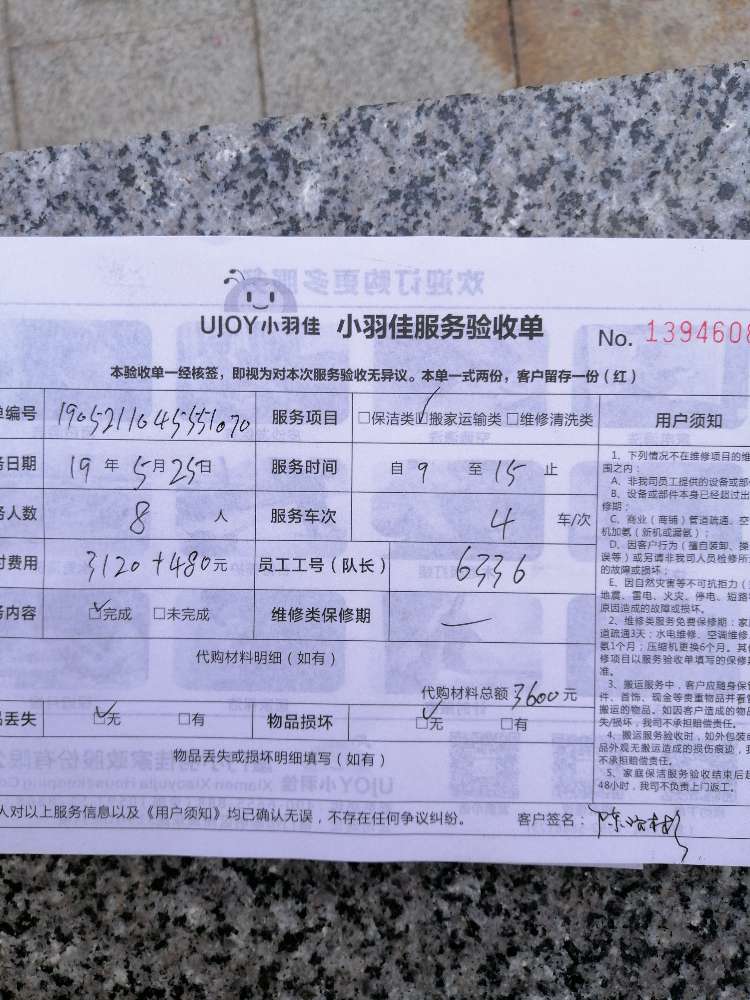 UJOY小羽佳 小羽佳服务验收单 No. 1394608
本验收单一经核签，即视为对本次服务验收无异议。本单一式两份，客户留存一份（红）
单编号 1905211045551070 服务项目 □保洁类☑搬家运输类□维修清洗类 用户须知
务日期 19年5月25日 服务时间 自9至15止
务人数 8人 服务车次 4车/次
付费用 3120+480元 员工工号（队长） 6336
务内容 ☑完成 □未完成 维修类保修期 —
代购材料明细（如有）
代购材料总额3600元
品丢失 ☑无 □有 物品损坏 ☑无 □有
物品丢失或损坏明细填写（如有）
人对以上服务信息以及《用户须知》均已确认无误，不存在任何争议纠纷。 客户签名：
1、下列情况不在维修项目的维
围之内：
A、非我司员工提供的设备或部
B、设备或部件本身已经超过出
修期；
C、商业（商铺）管道疏通、空
机加氨（新机或漏氨）；
D、因客户行为（擅自装卸、操
误等）或另请非我司人员检修所
的故障或损坏；
E、因自然灾害等不可抗拒力（
地震、雷电、火灾、停电、短路
原因造成的故障或损坏。
2、维修类服务免费保修期：家
道疏通3天；水电维修、空调维修
氨1个月；压缩机更换6个月。其
修项目以服务验收单填写的保修
准。
3、搬运服务中，客户应随身保
件、首饰、现金等贵重物品并看
搬运的物品。如因客户造成的物品
失/损坏，我司不承担赔偿责任。
4、搬运服务验收时，如外包装
品外观无搬运造成的损伤痕迹，
不承担赔偿责任。
5、家庭保洁服务验收结束后超
48小时，我司不负责上门返工。